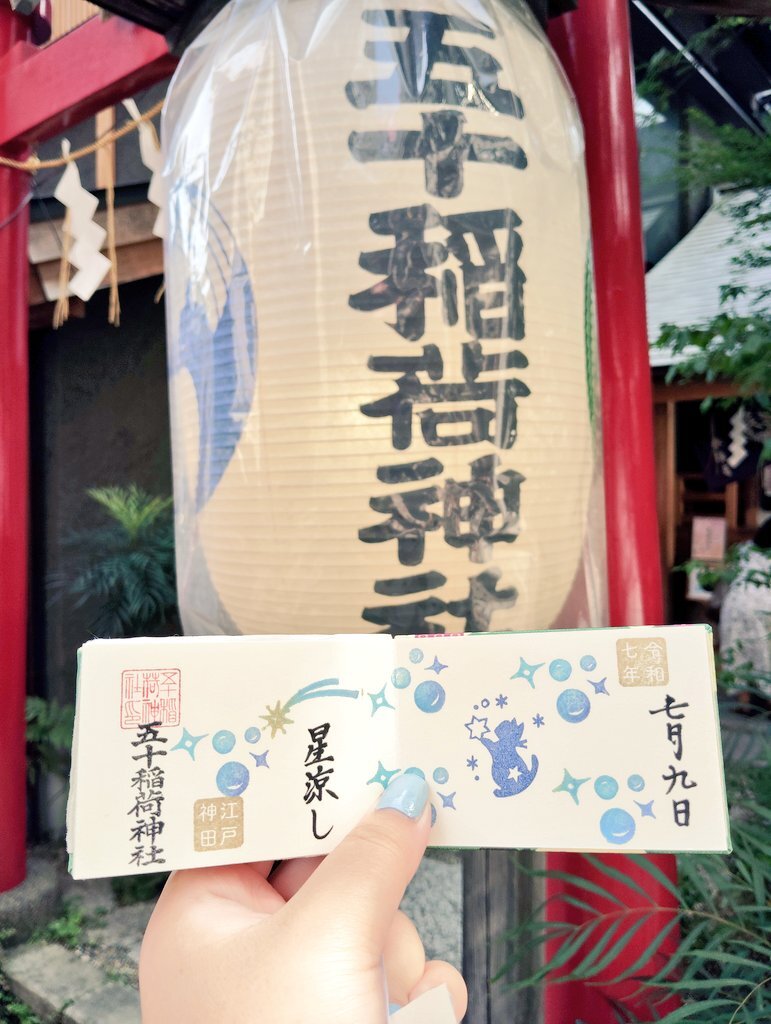 五十稲荷神社
令和
七年
七月九日
星涼し
江戸
神田
五十稲荷神社
五十稲
荷神
社印